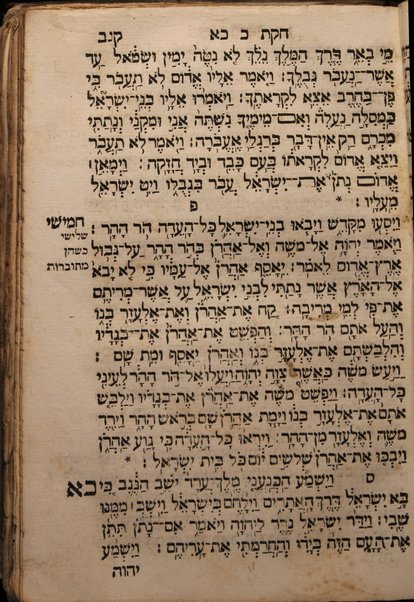 חקת כ כא קנב
מֵי בְאֵר דֶּרֶךְ הַמֶּלֶךְ נֵלֵךְ לֹא נִטֶּה יָמִין וּשְׂמֹאל עַד
אֲשֶׁר־נַעֲבֹר גְּבֻלֶךָ׃ וַיֹּאמֶר אֵלָיו אֱדוֹם לֹא תַעֲבֹר בִּי
פֶּן־בַּחֶרֶב אֵצֵא לִקְרָאתֶךָ׃ וַיֹּאמְרוּ אֵלָיו בְּנֵי־יִשְׂרָאֵל
בַּמְסִלָּה נַעֲלֶה וְאִם־מֵימֶיךָ נִשְׁתֶּה אֲנִי וּמִקְנַי וְנָתַתִּי
מִכְרָם רַק אֵין־דָּבָר בְּרַגְלַי אֶעֱבֹרָה׃ וַיֹּאמֶר לֹא תַעֲבֹר
וַיֵּצֵא אֱדוֹם לִקְרָאתוֹ בְּעַם כָּבֵד וּבְיָד חֲזָקָה׃ וַיְמָאֵן׀
אֱדוֹם נְתֹן אֶת־יִשְׂרָאֵל עֲבֹר בִּגְבֻלוֹ וַיֵּט יִשְׂרָאֵל
מֵעָלָיו׃ * פ
חמישי וַיִּסְעוּ מִקָּדֵשׁ וַיָּבֹאוּ בְנֵי־יִשְׂרָאֵל כָּל־הָעֵדָה הֹר הָהָר׃
שלישי וַיֹּאמֶר יְהוָה אֶל־מֹשֶׁה וְאֶל־אַהֲרֹן בְּהֹר הָהָר עַל־גְּבוּל
כשהן אֶרֶץ־אֱדוֹם לֵאמֹר׃ יֵאָסֵף אַהֲרֹן אֶל־עַמָּיו כִּי לֹא יָבֹא
מחוברות אֶל־הָאָרֶץ אֲשֶׁר נָתַתִּי לִבְנֵי יִשְׂרָאֵל עַל אֲשֶׁר־מְרִיתֶם
אֶת־פִּי לְמֵי מְרִיבָה׃ קַח אֶת־אַהֲרֹן וְאֶת־אֶלְעָזָר בְּנוֹ
וְהַעַל אֹתָם הֹר הָהָר׃ וְהַפְשֵׁט אֶת־אַהֲרֹן אֶת־בְּגָדָיו
וְהִלְבַּשְׁתָּם אֶת־אֶלְעָזָר בְּנוֹ וְאַהֲרֹן יֵאָסֵף וּמֵת שָׁם׃
וַיַּעַשׂ מֹשֶׁה כַּאֲשֶׁר צִוָּה יְהוָה וַיַּעֲלוּ אֶל־הֹר הָהָר לְעֵינֵי
כָּל־הָעֵדָה׃ וַיַּפְשֵׁט מֹשֶׁה אֶת־אַהֲרֹן אֶת־בְּגָדָיו וַיַּלְבֵּשׁ
אֹתָם אֶת־אֶלְעָזָר בְּנוֹ וַיָּמָת אַהֲרֹן שָׁם בְּרֹאשׁ הָהָר וַיֵּרֶד
מֹשֶׁה וְאֶלְעָזָר מִן־הָהָר׃ וַיִּרְאוּ כָּל־הָעֵדָה כִּי גָוַע אַהֲרֹן
וַיִּבְכּוּ אֶת־אַהֲרֹן שְׁלֹשִׁים יוֹם כֹּל בֵּית יִשְׂרָאֵל׃ *
ס וַיִּשְׁמַע הַכְּנַעֲנִי מֶלֶךְ־עֲרָד יֹשֵׁב הַנֶּגֶב כִּי כא
בָּא יִשְׂרָאֵל דֶּרֶךְ הָאֲתָרִים וַיִּלָּחֶם בְּיִשְׂרָאֵל וַיִּשְׁבְּ׀ מִמֶּנּוּ
שֶׁבִי׃ וַיִּדַּר יִשְׂרָאֵל נֶדֶר לַיהוָה וַיֹּאמַר אִם־נָתֹן תִּתֵּן
אֶת־הָעָם הַזֶּה בְּיָדִי וְהַחֲרַמְתִּי אֶת־עָרֵיהֶם׃ וַיִּשְׁמַע
יהוה